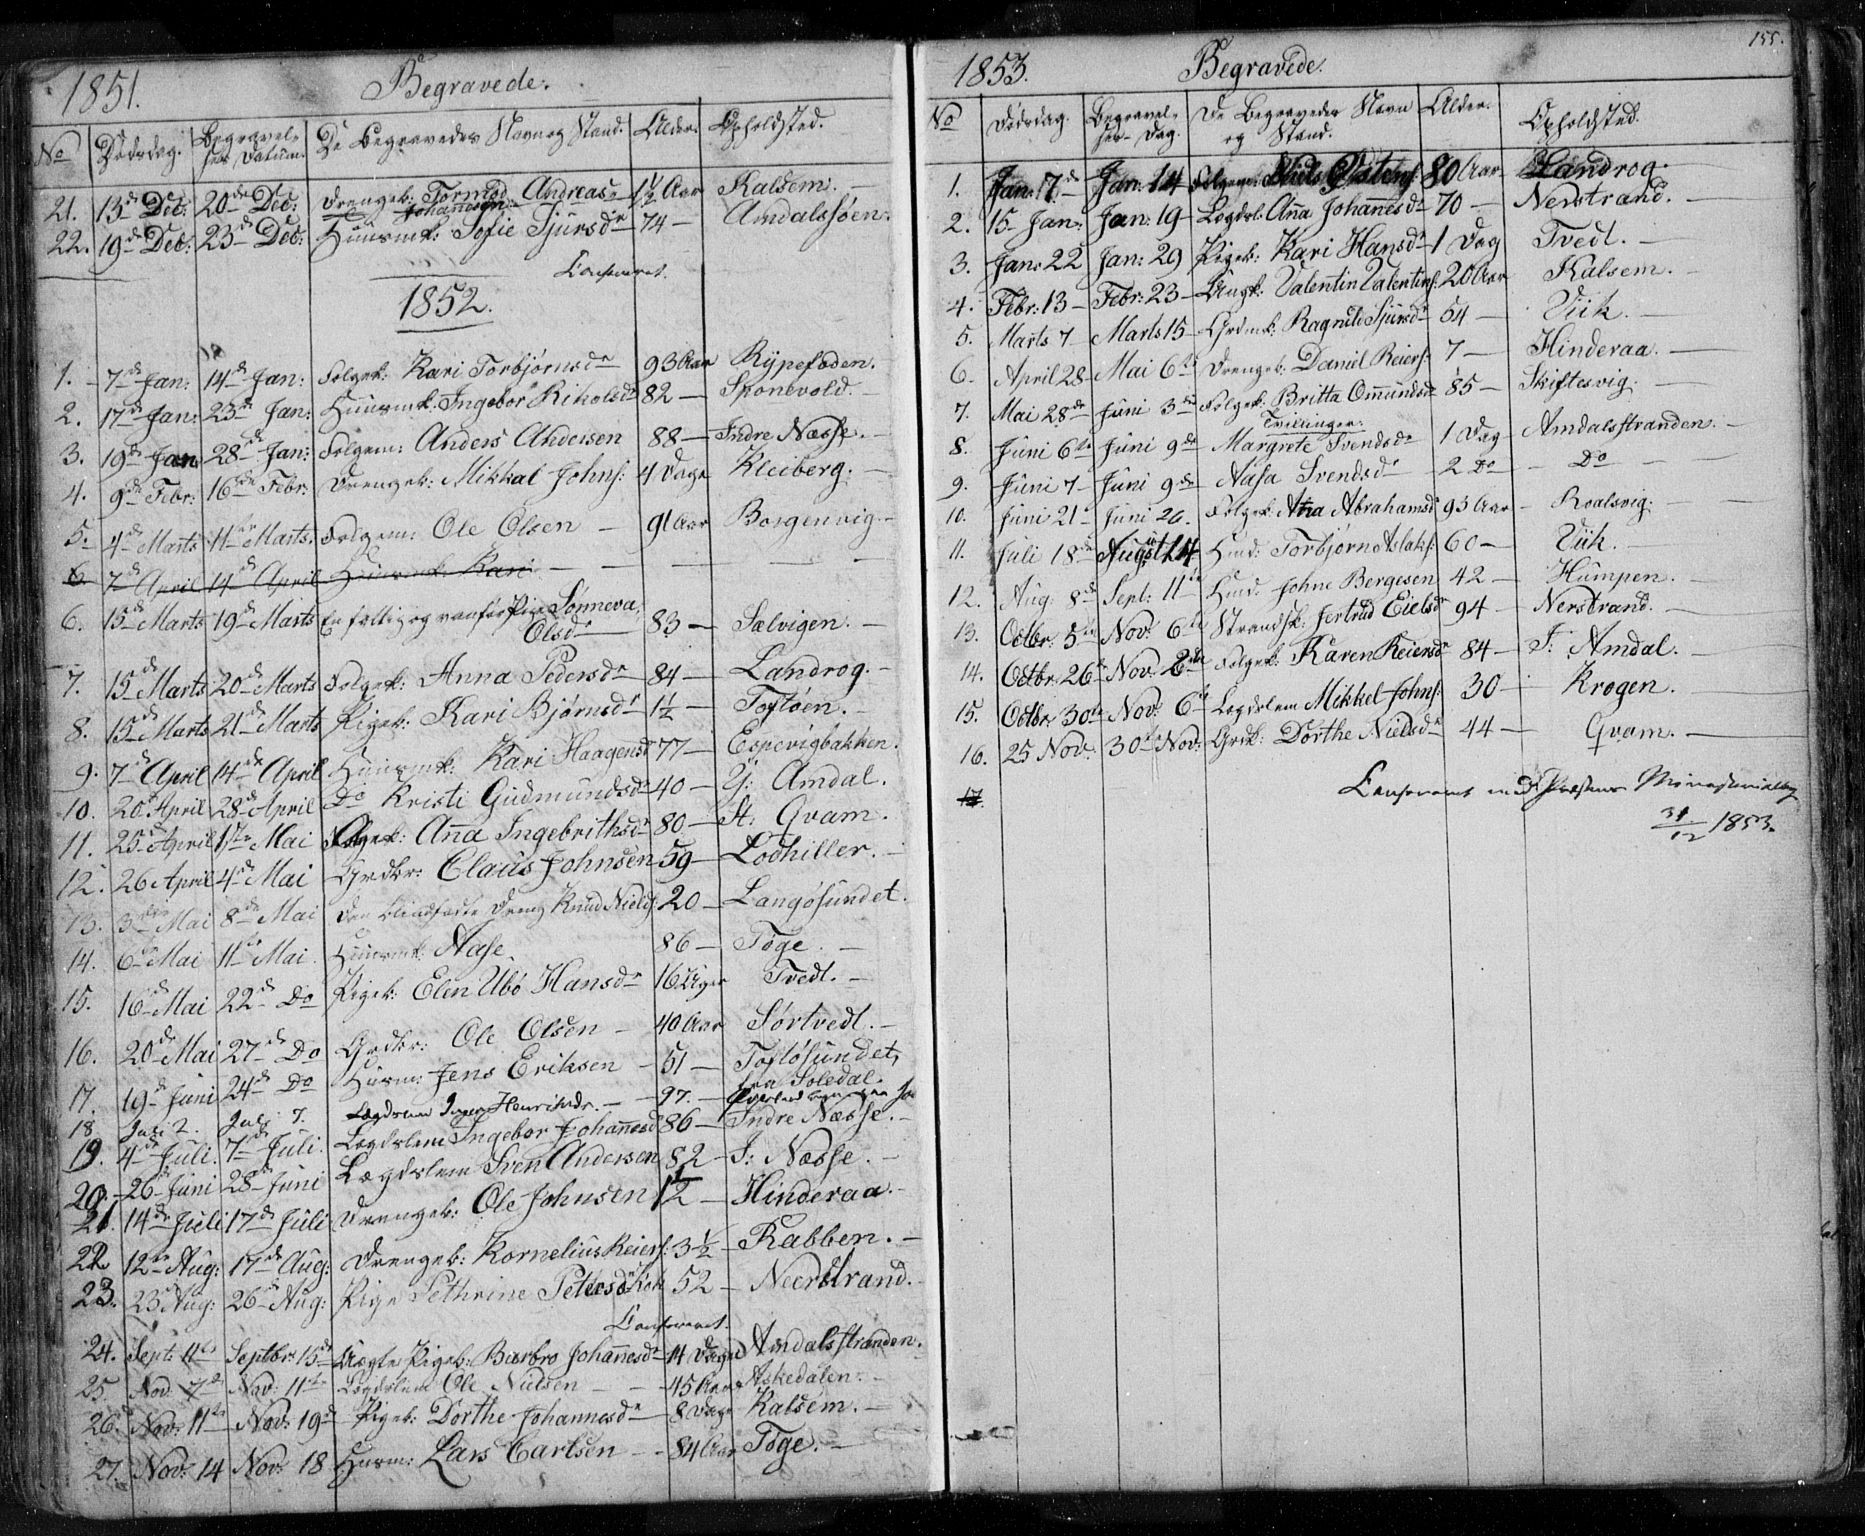 1851.
Begravede.
No Dødsdag. Begravel= ses Datum. De Begravedes Navn og Stand. Alder. Opholdsted.
21. 13de Dec: 20de Dec: Drengeb: Tormod Andreas Johannesen 1½ Aar Kalsem.
22. 19de Dec: 23de Dec: Huusmk: Sofie Sjursdr 74 — Amdalssøen.
Confereret.
1852.
1. 7de Jan: 14de Jan: Folgek: Kari Torbjørnsdr 93 Aar Rypefoden.
2. 17de Jan: 23de Jan: Huusmk: Ingebor Riholsdr 82 — Sponevold.
3. 19de Jan 28de Jan: Folgem: Anders Andersen 88 — Indre Næsse.
4. 9de Febr: 16de Febr: Drengeb: Mikkal Johns: 4 Dage Kleiberg.
5. 4de Marts 11te Marts. Folgem: Ole Olsen — 91 Aar Borgenvig.
6. 7de April 14de April Huusmk: Kari — — —
6. 15de Marts 19de Marts En fattig og vanfør Pige Sønneva
Olsdr — 83 — Sælvigen.
7. 15de Marts 20de Marts Folgek: Anna Pedersdr 84 — Landrog.
8. 15de Marts 21de Marts Pigeb: Kari Bjørnsdr 1½ — Toftøen.
9. 7de April 14de April Huusmk: Kari Haagensdr 77 — Espevigbakken.
10. 20de April 28de April Do Kristi Gudmundsdr 40 — Y: Amdal.
11. 25de April 1ste Mai Folgek: Aña Ingebrithsdr 80 — St. Qvam.
12. 26 April 4de Mai Grdbr: Claus Johnsen 59 — Lodhiller.
13. 3die Mai 8de Mai Den blindfødte Dreng Knud Niels: 20 — Langøsundet.
14. 6te Mai 11te Mai Huusmk: Aase. 86 — Tøge.
15. 16de Mai 22de Do Pigeb: Elen Ubø Hansdr 16 Uger Tvedt.
16. 20de Mai 27de Do Grdbr: Ole Olsen — 40 Aar Sørtvedt.
17. 19de Juni 24de Do Husm: Jens Eriksen — 51 — Toftøsundet,
fra Soledal.
18. Juli 2. Juli 7. Lægdslem Inger Henriksdr. — 97. —
19. 4de Juli. 7de Juli. Lægdslem Ingebor Johannesd 86 — Indre Næsse.
20. 26de Juni 28de Juni Lægdslem Sven Andersen 82 — I: Næsse.
21. 14de Juli 17de Juli Drengeb: Ole Johnsen 1½ — Hinderaa.
22 12te Aug: 17de Aug: Drengeb: Kornelius Reiers: 3½ — Rabben.
23. 23de Aug: 26de Aug: Pige Pethrine Petersdr Kok 52 — Neerstrand.
Confereret.
24. Sept: 11te Septbr: 15de Uægte Pigeb: Barbro Johannesdr 14 Dage Amdalsstranden.
25. Nov: 7de Nov: 11te Lægdslem Ole Nielsen — — 45 Aar Askedalen.
26. Nov: 11te Nov: 19de Pigeb: Dorthe Johannesdr 8 Dage Kalsem.
27. Nov: 14 Nov: 18 Husm: Lars Carlsen — 84 Aar Tøge.
155.
1853.
Begravede.
No Dødsdag. Begravel= ses- Dag. De Begravedes Navn og Stand. Alder. Opholdsted.
1. Jan: 7de Jan: 14 Folgem: Niels Østens: 80 Aar Landrog.
2. 15 Jan: Jan: 19 — Lægdsl: Aña Johannesdr 70 — Nerstrand.
3. Jan: 22 Jan: 29 Pigeb: Kari Hansdr 1 Dag Tvedt.
4. Febr: 13 — Febr: 23 — Ungk: Valentin Valentins: 20 Aar Kalsem.
5. Marts 7 — Marts 15 — Grdmk: Ragnild Sjursdr 54 — Viik.
6. April 28 — Mai 6te Drengeb: Daniel Reiers: 7 — Hinderaa.
7. Mai 28de Juni 3die Folgek: Britta Omundsdr 85 — Skiftesvig.
Tvillinger.
8. Juni 6te Juni 9de Margrete Svendsdr 1 Dag Amdalsstranden.
9. Juni 7 — Juni 9de Aasa Svendsdr 2 Do — Do
10. Juni 21 — Juni 26. Folgek: Aña Abrahamsd 93 Aar — Roalsvig.
11. Juli 18de August 14 Husm: Torbjørn Aslaks: 60 — Viik.
12. Aug: 8de Sept: 11te Husm: Johne Bergesen 42 — Humpen.
13. Octbr: 5te Nov: 6te Strandsk: Jertrud Eielsdr 94 — Nerstrand.
14. Octbr: 26te Nov: 2den Folgek: Karen Reiersdr 84 — I: Amdal.
15. Octbr 30te Nov: 6te Lægdslem Mikkel Johns: 30 — Krogen.
16. 25 Nov. 30te Nov: Grdk: Dorthe Nielsdr 44 — Qvam.
17.
Confereret med Præstens Ministerialbog
31/12 1853.